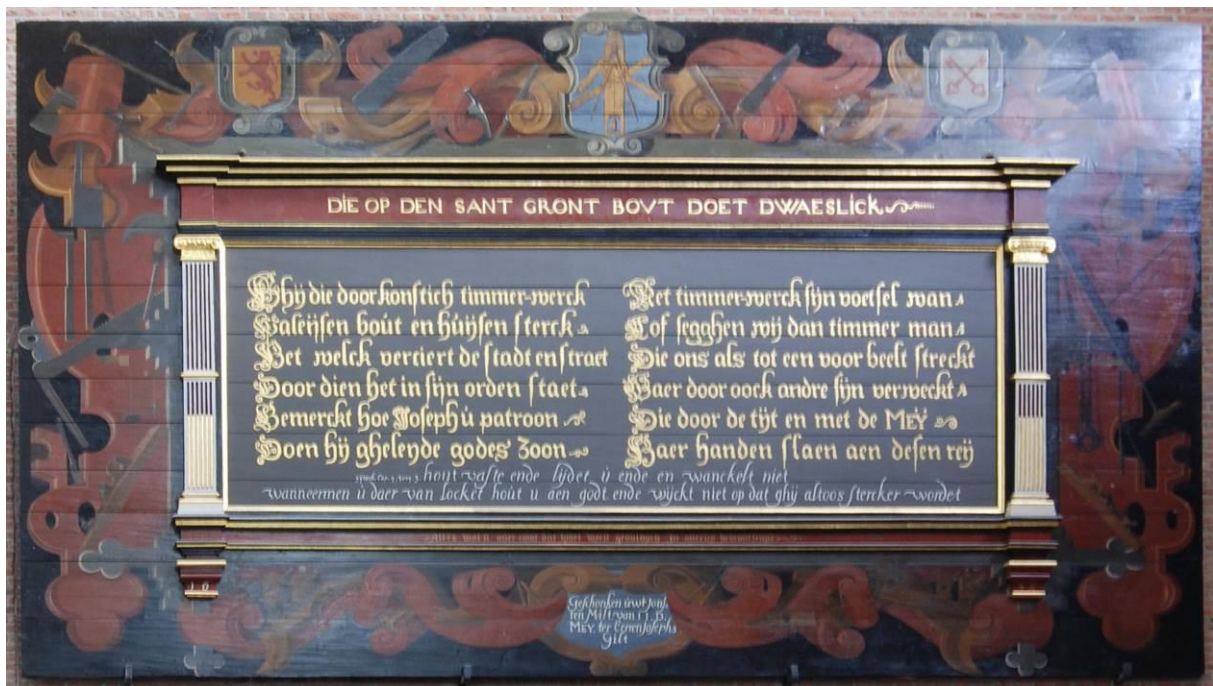 DIE OP DEN SANT GRONT BOVT DOET DWAESLICK
Ghij die door konstich timmer-werck
Paleijsen boút en húijsen sterck
Het welck verciert de stadt en straet
Door dien het in sijn orden staet
Bemerckt hoe Joseph ú patroon
Doen hij gheleyde godes Zoon
Het timmer-werck sijn voetsel wan
Lof segghen wij dan timmer man
Die ons als tot een voor beelt streckt
Daer door oock andre sijn verweckt
Die door de tijt en met de MEY
Haer handen slaen aen desen reij
hout vaste ende lijdet ú ende en wanckelt niet
wanneermen ú daer van locket hout u aen godt ende wijckt niet op dat ghij altoos stercker wordet
Geschonken úwt Jons
ten Milt van I I. D.
MEY. ter Eeren Josephs
Gilt